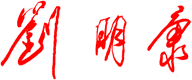 劉明康